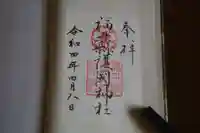 奉拝
福井縣護國神社
令和四年四月八日